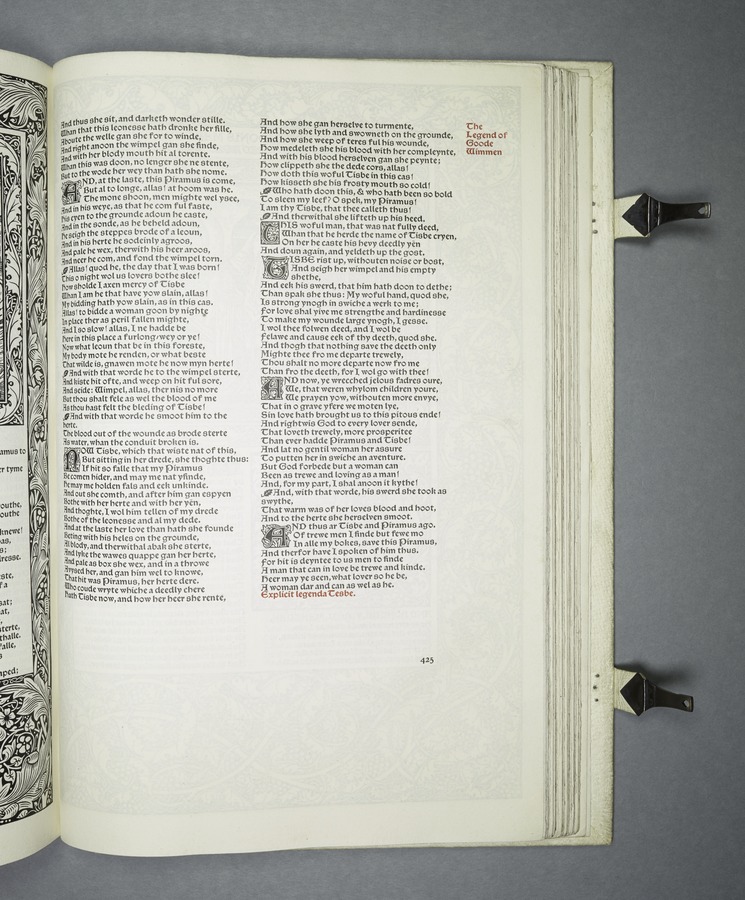 And thus she sit, and darketh wonder stille.
Whan that this leonesse hath dronke her fille,
Aboute the welle gan she for to winde,
And right anoon the wimpel gan she finde,
And with her blody mouth hit al torente.
Whan this was doon, no lenger she ne stente,
But to the wode her wey than hath she nome.
AND, at the laste, this Piramus is come,
But al to longe, allas! at hoom was he.
The mone shoon, men mighte wel ysee,
And in his weye, as that he com ful faste,
His eyen to the grounde adoun he caste,
And in the sonde, as he beheld adoun,
He seigh the steppes brode of a leoun,
And in his herte he sodeinly agroos,
And pale he wex, therwith his heer aroos,
And neer he com, and fond the wimpel torn.
Allas! quod he, the day that I was born!
This o night wol us lovers bothe slee!
How sholde I axen mercy of Tisbe
Whan I am he that have yow slain, allas!
My bidding hath yow slain, as in this cas.
Allas! to bidde a woman goon by nighte
In place ther as peril fallen mighte,
And I so slow! allas, I ne hadde be
Here in this place a furlong-wey or ye!
Now what leoun that be in this foreste,
My body mote he renden, or what beste
That wilde is, gnawen mote he now myn herte!
And with that worde he to the wimpel sterte,
And kiste hit ofte, and weep on hit ful sore,
And seide: Wimpel, allas, ther nis no more
But thou shalt fele as wel the blood of me
As thou hast felt the bleding of Tisbe!
And with that worde he smoot him to the
herte.
The blood out of the wounde as brode sterte
As water, whan the conduit broken is.
NOW Tisbe, which that wiste nat of this,
But sitting in her drede, she thoghte thus:
If hit so falle that my Piramus
Be comen hider, and may me nat yfinde,
He may me holden fals and eek unkinde.
And out she comth, and after him gan espyen
Bothe with her herte and with her yën,
And thoghte, I wol him tellen of my drede
Bothe of the leonesse and al my dede.
And at the laste her love than hath she founde
Beting with his heles on the grounde,
Al blody, and therwithal abak she sterte,
And lyke the wawes quappe gan her herte,
And pale as box she wex, and in a throwe
Avysed her, and gan him wel to knowe,
That hit was Piramus, her herte dere.
Who coude wryte whiche a deedly chere
Hath Tisbe now, and how her heer she rente,
And how she gan herselve to turmente,
And how she lyth and swowneth on the grounde,
And how she weep of teres ful his wounde,
How medeleth she his blood with her compleynte,
And with his blood herselven gan she peynte;
How clippeth she the dede cors, allas!
How doth this woful Tisbe in this cas!
How kisseth she his frosty mouth so cold!
Who hath doon this, & who hath been so bold
To sleen my leef? O spek, my Piramus!
I am thy Tisbe, that thee calleth thus!
And therwithal she lifteth up his heed.
THIS woful man, that was nat fully deed,
Whan that he herde the name of Tisbe cryen,
On her he caste his hevy deedly yën
And doun again, and yeldeth up the gost.
TISBE rist up, withouten noise or bost,
And seigh her wimpel and his empty
shethe,
And eek his swerd, that him hath doon to dethe;
Than spak she thus: My woful hand, quod she,
Is strong ynogh in swiche a werk to me;
For love shal yive me strengthe and hardinesse
To make my wounde large ynogh, I gesse.
I wol thee folwen deed, and I wol be
Felawe and cause eek of thy deeth, quod she.
And thogh that nothing save the deeth only
Mighte thee fro me departe trewely,
Thou shalt no more departe now fro me
Than fro the deeth, for I wol go with thee!
AND now, ye wrecched jelous fadres oure,
We, that weren whylom children youre,
We prayen yow, withouten more envye,
That in o grave yfere we moten lye,
Sin love hath brought us to this pitous ende!
And rightwis God to every lover sende,
That loveth trewely, more prosperitee
Than ever hadde Piramus and Tisbe!
And lat no gentil woman her assure
To putten her in swiche an aventure.
But God forbede but a woman can
Been as trewe and loving as a man!
And, for my part, I shal anoon it kythe!
And, with that worde, his swerd she took as
swythe,
That warm was of her loves blood and hoot,
And to the herte she herselven smoot.
AND thus ar Tisbe and Piramus ago.
Of trewe men I finde but fewe mo
In alle my bokes, save this Piramus,
And therfor have I spoken of him thus.
For hit is deyntee to us men to finde
A man that can in love be trewe and kinde.
Heer may ye seen, what lover so he be,
A woman dar and can as wel as he.
Explicit legenda Tesbe.
The
Legend of
Goode
Wimmen
425